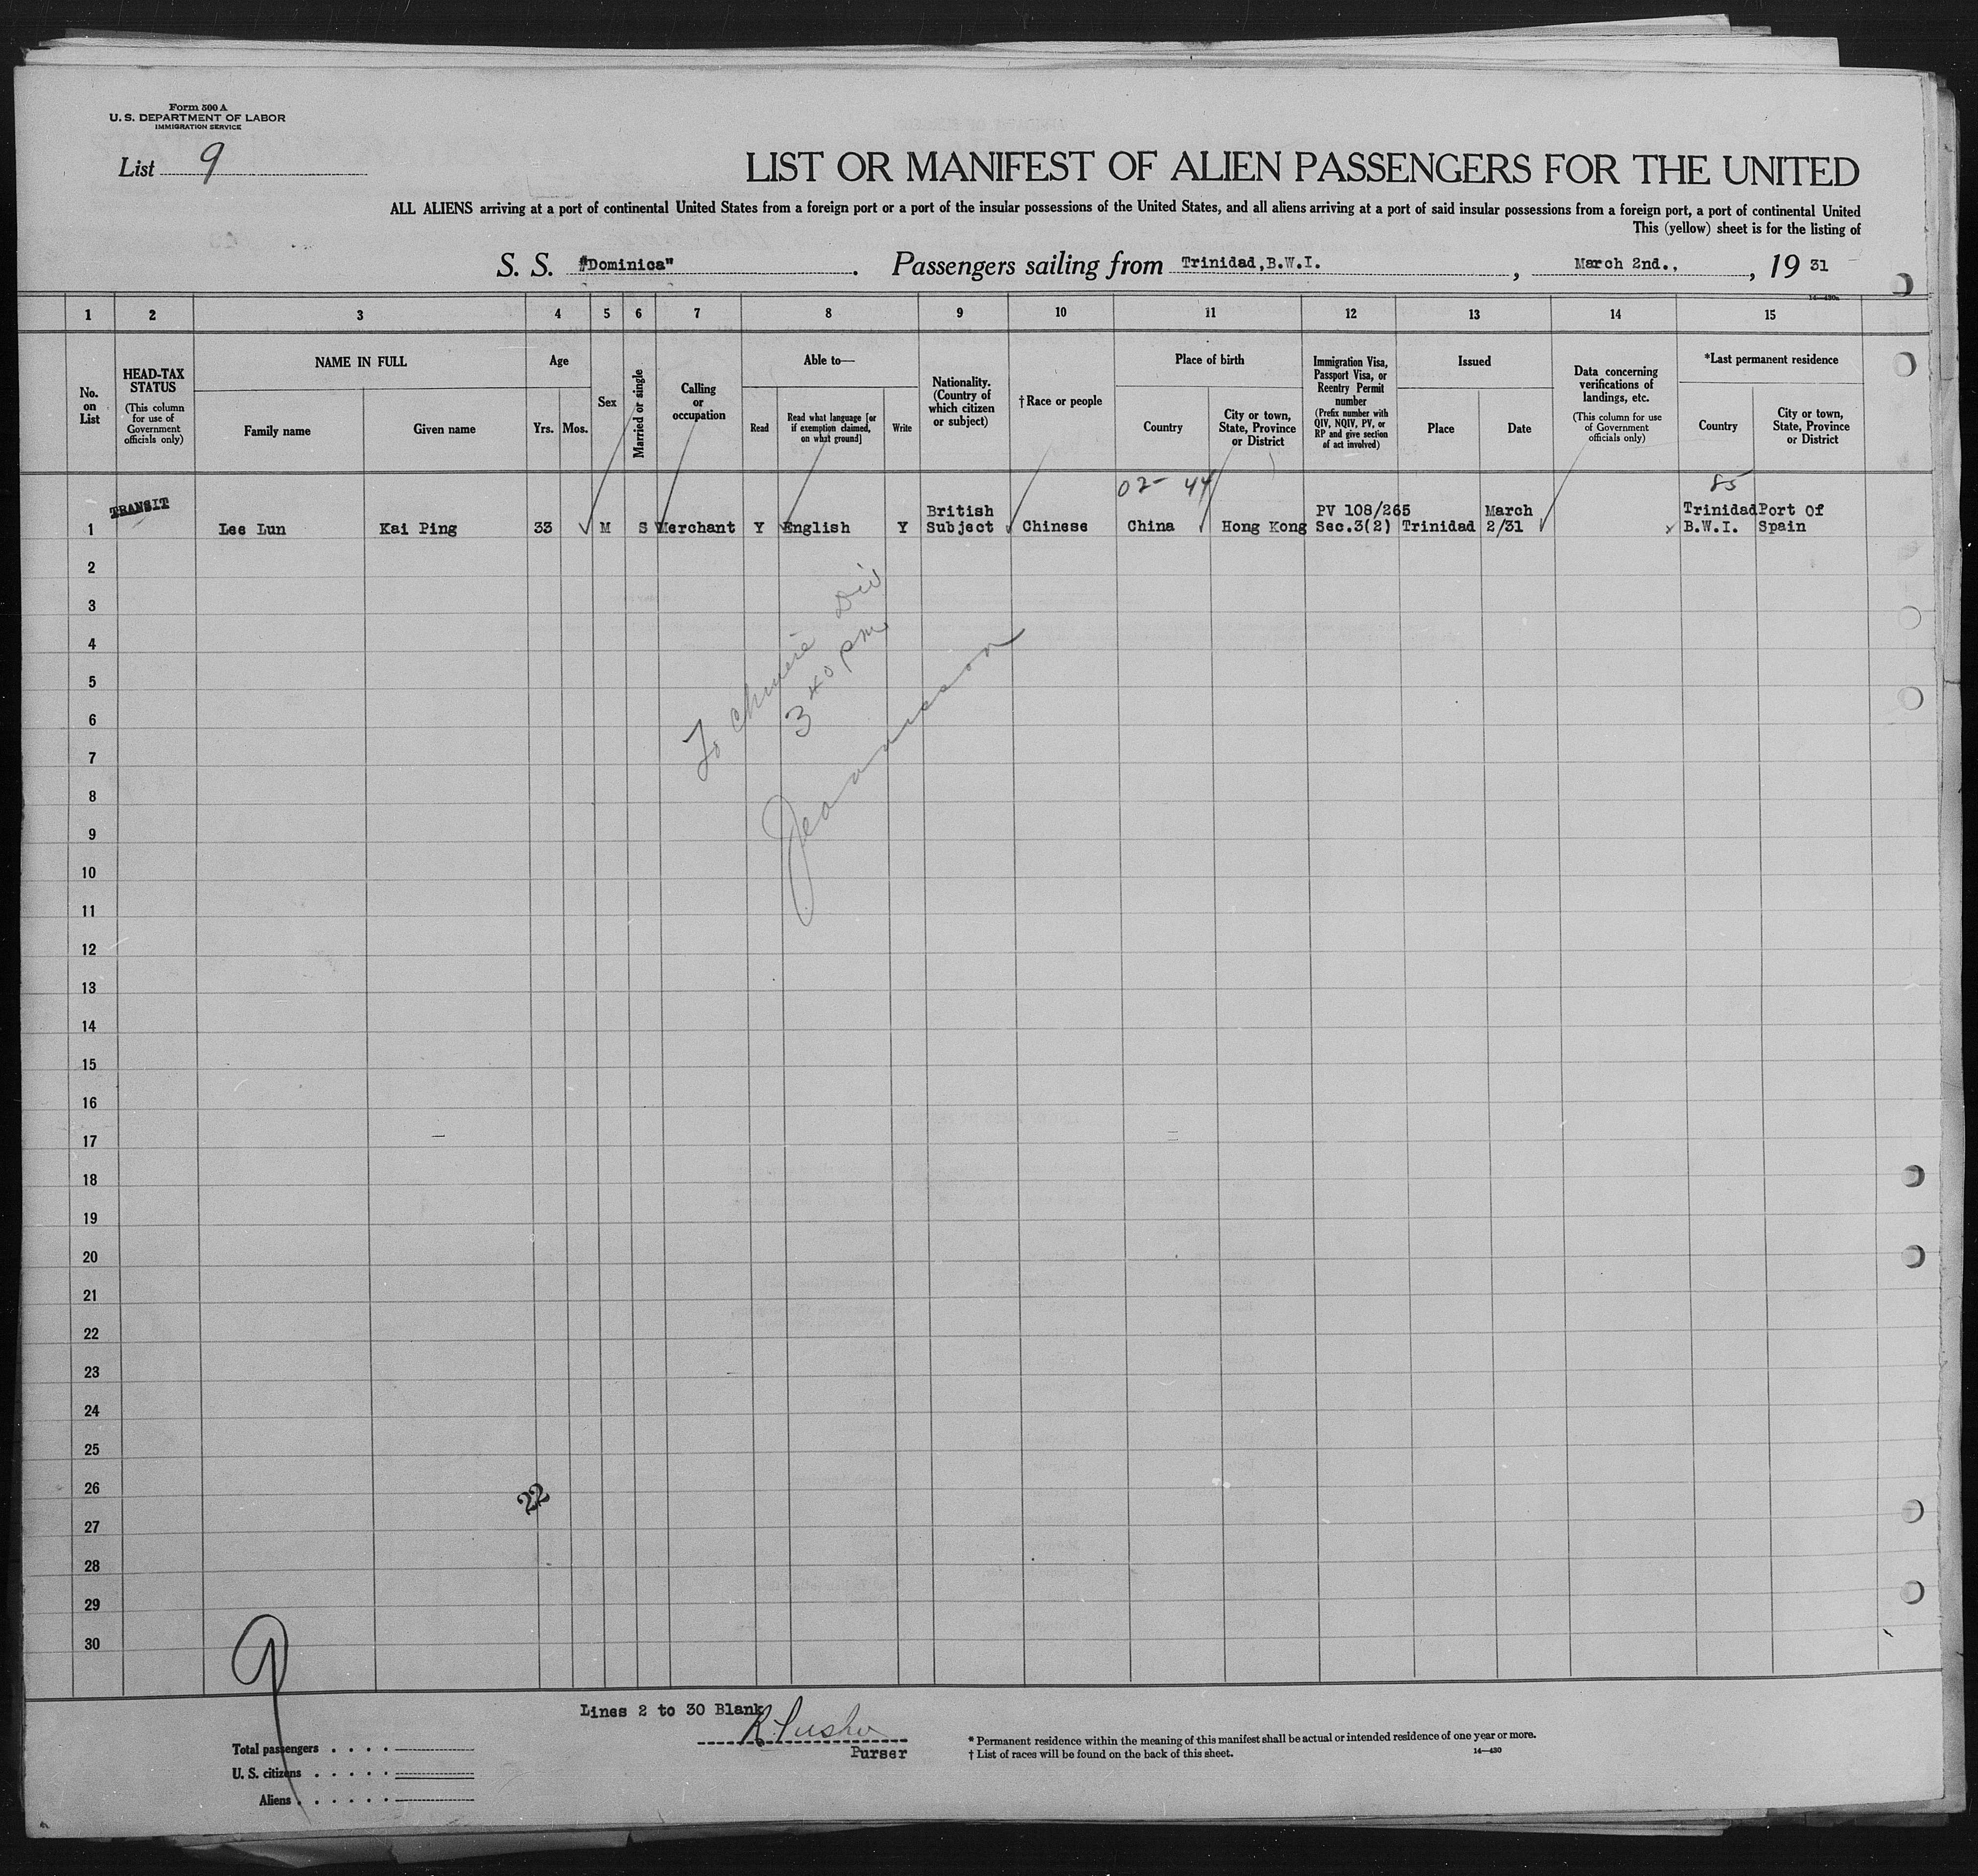 Form 500 A
U. S. DEPARTMENT OF LABOR
IMMIGRATION SERVICE
List 9
LIST OR MANIFEST OF ALIEN PASSENGERS FOR THE UNITED
ALL ALIENS arriving at a port of continental United States from a foreign port or a port of the insular possessions of the United States, and all aliens arriving at a port of said insular possessions from a foreign port, a port of continental United
This (yellow) sheet is for the listing of
S. S. "Dominica". Passengers sailing from Trinidad,B.W.I. , March 2nd., , 19 31
14—430a
1 2 3 4 5 6 7 8 9 10 11 12 13 14 15
No. on List
HEAD-TAX STATUS
(This column for use of Government officials only)
NAME IN FULL
Family name
Given name
Age
Yrs. Mos.
Sex
Married or single
Calling or occupation
Able to—
Read
Read what language [or if exemption claimed, on what ground]
Write
Nationality. (Country of which citizen or subject)
†Race or people
Place of birth
Country
City or town, State, Province or District
Immigration Visa, Passport Visa, or Reentry Permit number
(Prefix number with QIV, NQIV, PV, or RP and give section of act involved)
Issued
Place
Date
Data concerning verifications of landings, etc.
(This column for use of Government officials only)
*Last permanent residence
Country
City or town, State, Province or District
02- 44 85
TRANSIT
1 Lee Lun Kai Ping 33 M S Merchant Y English Y British Subject Chinese China Hong Kong PV 108/265 Sec.3(2) Trinidad March 2/31 Trinidad B.W.I. Port Of Spain
2
3
4
5
6
7
8
9
10
11
12
13
14
15
16
17
18
19
20
21
22
23
24
25
26
27
28
29
30
To Div
3 40 pm
22
9
Lines 2 to 30 Blank
Purser
Total passengers
U. S. citizens
Aliens
* Permanent residence within the meaning of this manifest shall be actual or intended residence of one year or more.
† List of races will be found on the back of this sheet.
14—430